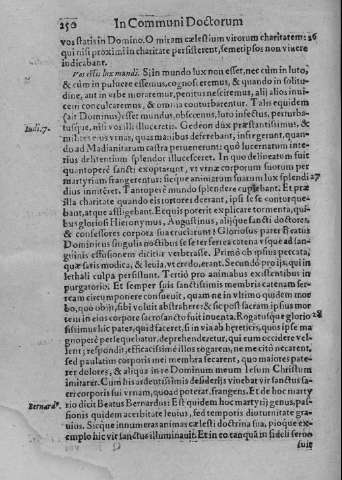 250 In Communi Doctorum
vos statis in Domino. O miram cælestium virorum charitatem: 26
qui nisi proximi in charitate persisterent, semetipsos non viuere
indicabant.
Vos estis lux mundi. Si in mundo lux non esset, nec cùm in luto,
& cùm in puluere essemus, cognosceremus, & quando in solitu-
dine, aut in vrbe moraremur, penitus nesciremus, alij alios inui-
cem conculcaremus, & omnia conturbarentur. Talis equidem
(ait Dominus) esset mundus, obscœnus, luto infectus, perturba-
Iudi. 7. tusque, nisi vos illi illucceretis. Gedeon dux præstantissimus, &
milites eius vrnas, quas manibus deferebant, infregerunt, quan-
do ad Madianitarum castra peruenerunt: quò lucernarum inte-
rius delitentium splendor illucesceret. In quo delineatum fuit
quantoperè sancti exoptarunt, vt vrnæ corporum suorum per
martyrium frangerentur: sicque animarum suarum lux splendi 27
diùs innitéret. Tantoperè mundo splendere cupiebant. Et præ
illa charitate quando eis tortores deerant, ipsi se se contorque-
bant, atque affligebant. Ecquis poterit explicare tormenta, qui-
bus gloriosi Hieronymus, Augustinus, alijque sancti doctores,
& confessores corpora sua cruciarunt? Gloriosus pater Beatus
Dominicus singulis noctibus se ter ferrea catena vsque ad san-
guinis effusionem diciter verberasse. Primò ob ipsius peccata,
quæ satis modica, & leuia, vt credo, erant. Secundò pro ijs, qui in
lethali culpa persistunt. Tertiò pro animabus existentibus in
purgatorio. Et semper suis sanctissimis membris catenam fer-
ream circumponere consueuit, quam ne in vltimo quidem mor
bo, quo obijt, sibi voluit abstrahere: & sic post sacram ipsius mor
tem in eius corpore sacrosancto fuit inuenta. Rogatusque glorio 28
sissimus hic pater, quid faceret, si in via ab hæreticis, quos ipse ma
gnoperè persequebatur, deprehenderetur, qui eum occidere vel-
lent; respondit, efficacissimè illos rogarem, ne me citò necarent,
sed paulatim corporis mei membra secarent, quo maiores pate-
rer dolores, & aliqua in re Dominum meum Iesum Christum
imitarer. Cùm his ardentissimis desiderijs viuebat vir sanctus sa-
cri corporis sui vrnam, quoad poterat, frangens. Et de hoc marty
Bernardᵘ. rio dicit Beatus Bernardus: Est quidem hoc martyrij genus, pas-
sionis quidem acerbitate leuius, sed temporis diuturnitate gra-
uius. Sicque innumeras animas cælesti doctrina sua, pioque ex-
emplo hic vir sanctus illuminauit. Et in eo tanquã in fideli seruo
fuit